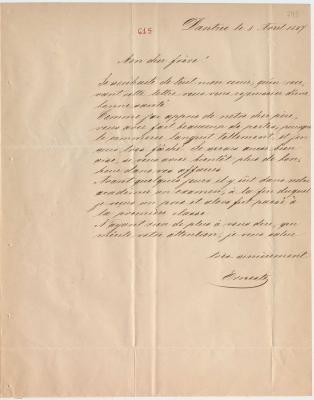 615
le 8 Avril 1887
Mon cher frère!
Je souhaite de tout mon coeur, qu'en rece,
vant cette lettre, vous vous réjouissiez d'une
bonne santé
Comme j'ai appris de notre cher père,
vous avez fait beaucoup de pertes, puisque
le commerce languit tellement, et j'en
suis très fâché. Je serais aussi bien
aise, si vous aviez bientôt plus de bon,
heur dans vos affaires
Avant quelques jours il y eut dans notre
académie un examen, à la fin duquel
je reçus un prix et alors fut passé à
la première classe
N'ayant rien de plus à vous dire, qui
mérite votre attention, je vous salue
très amicalement
Ernest